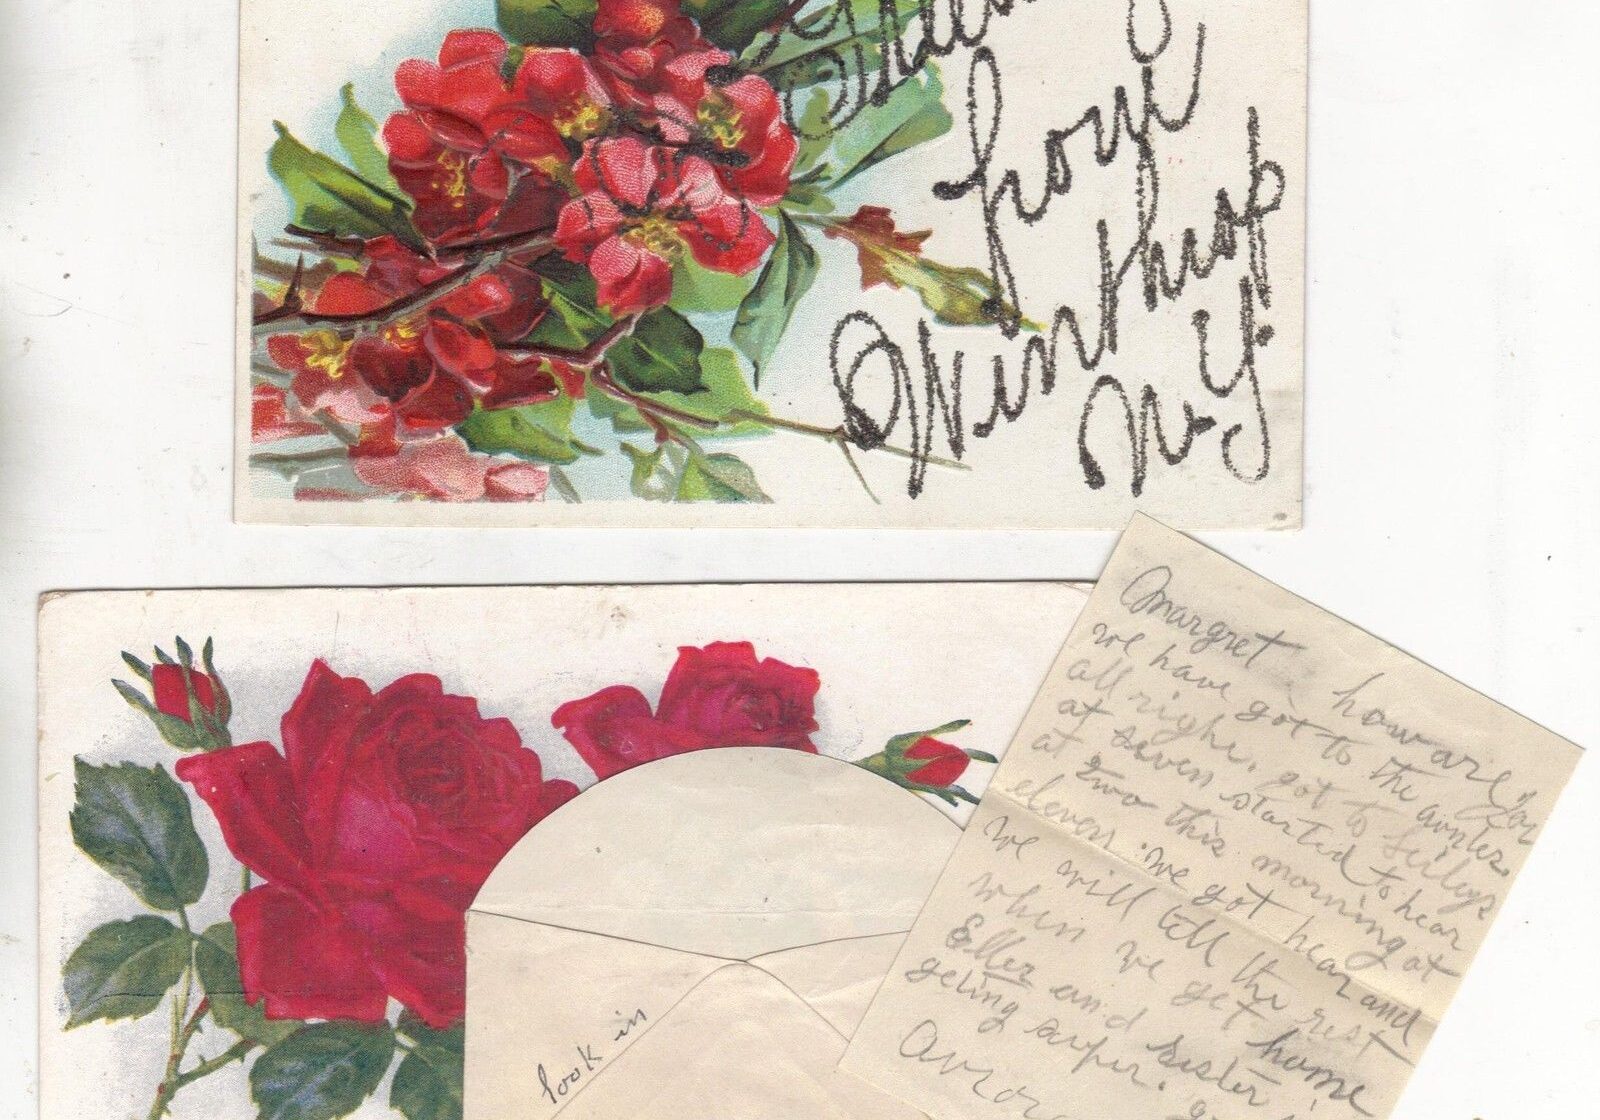 from
Winthrop
N.Y.
look in
Margret how are you
we have got to the aunter
all right, got to
at seven started to hear
at two this morning at
eleven. we got hear and
we will tell the rest
when we get home
Eller and sister
geting super.